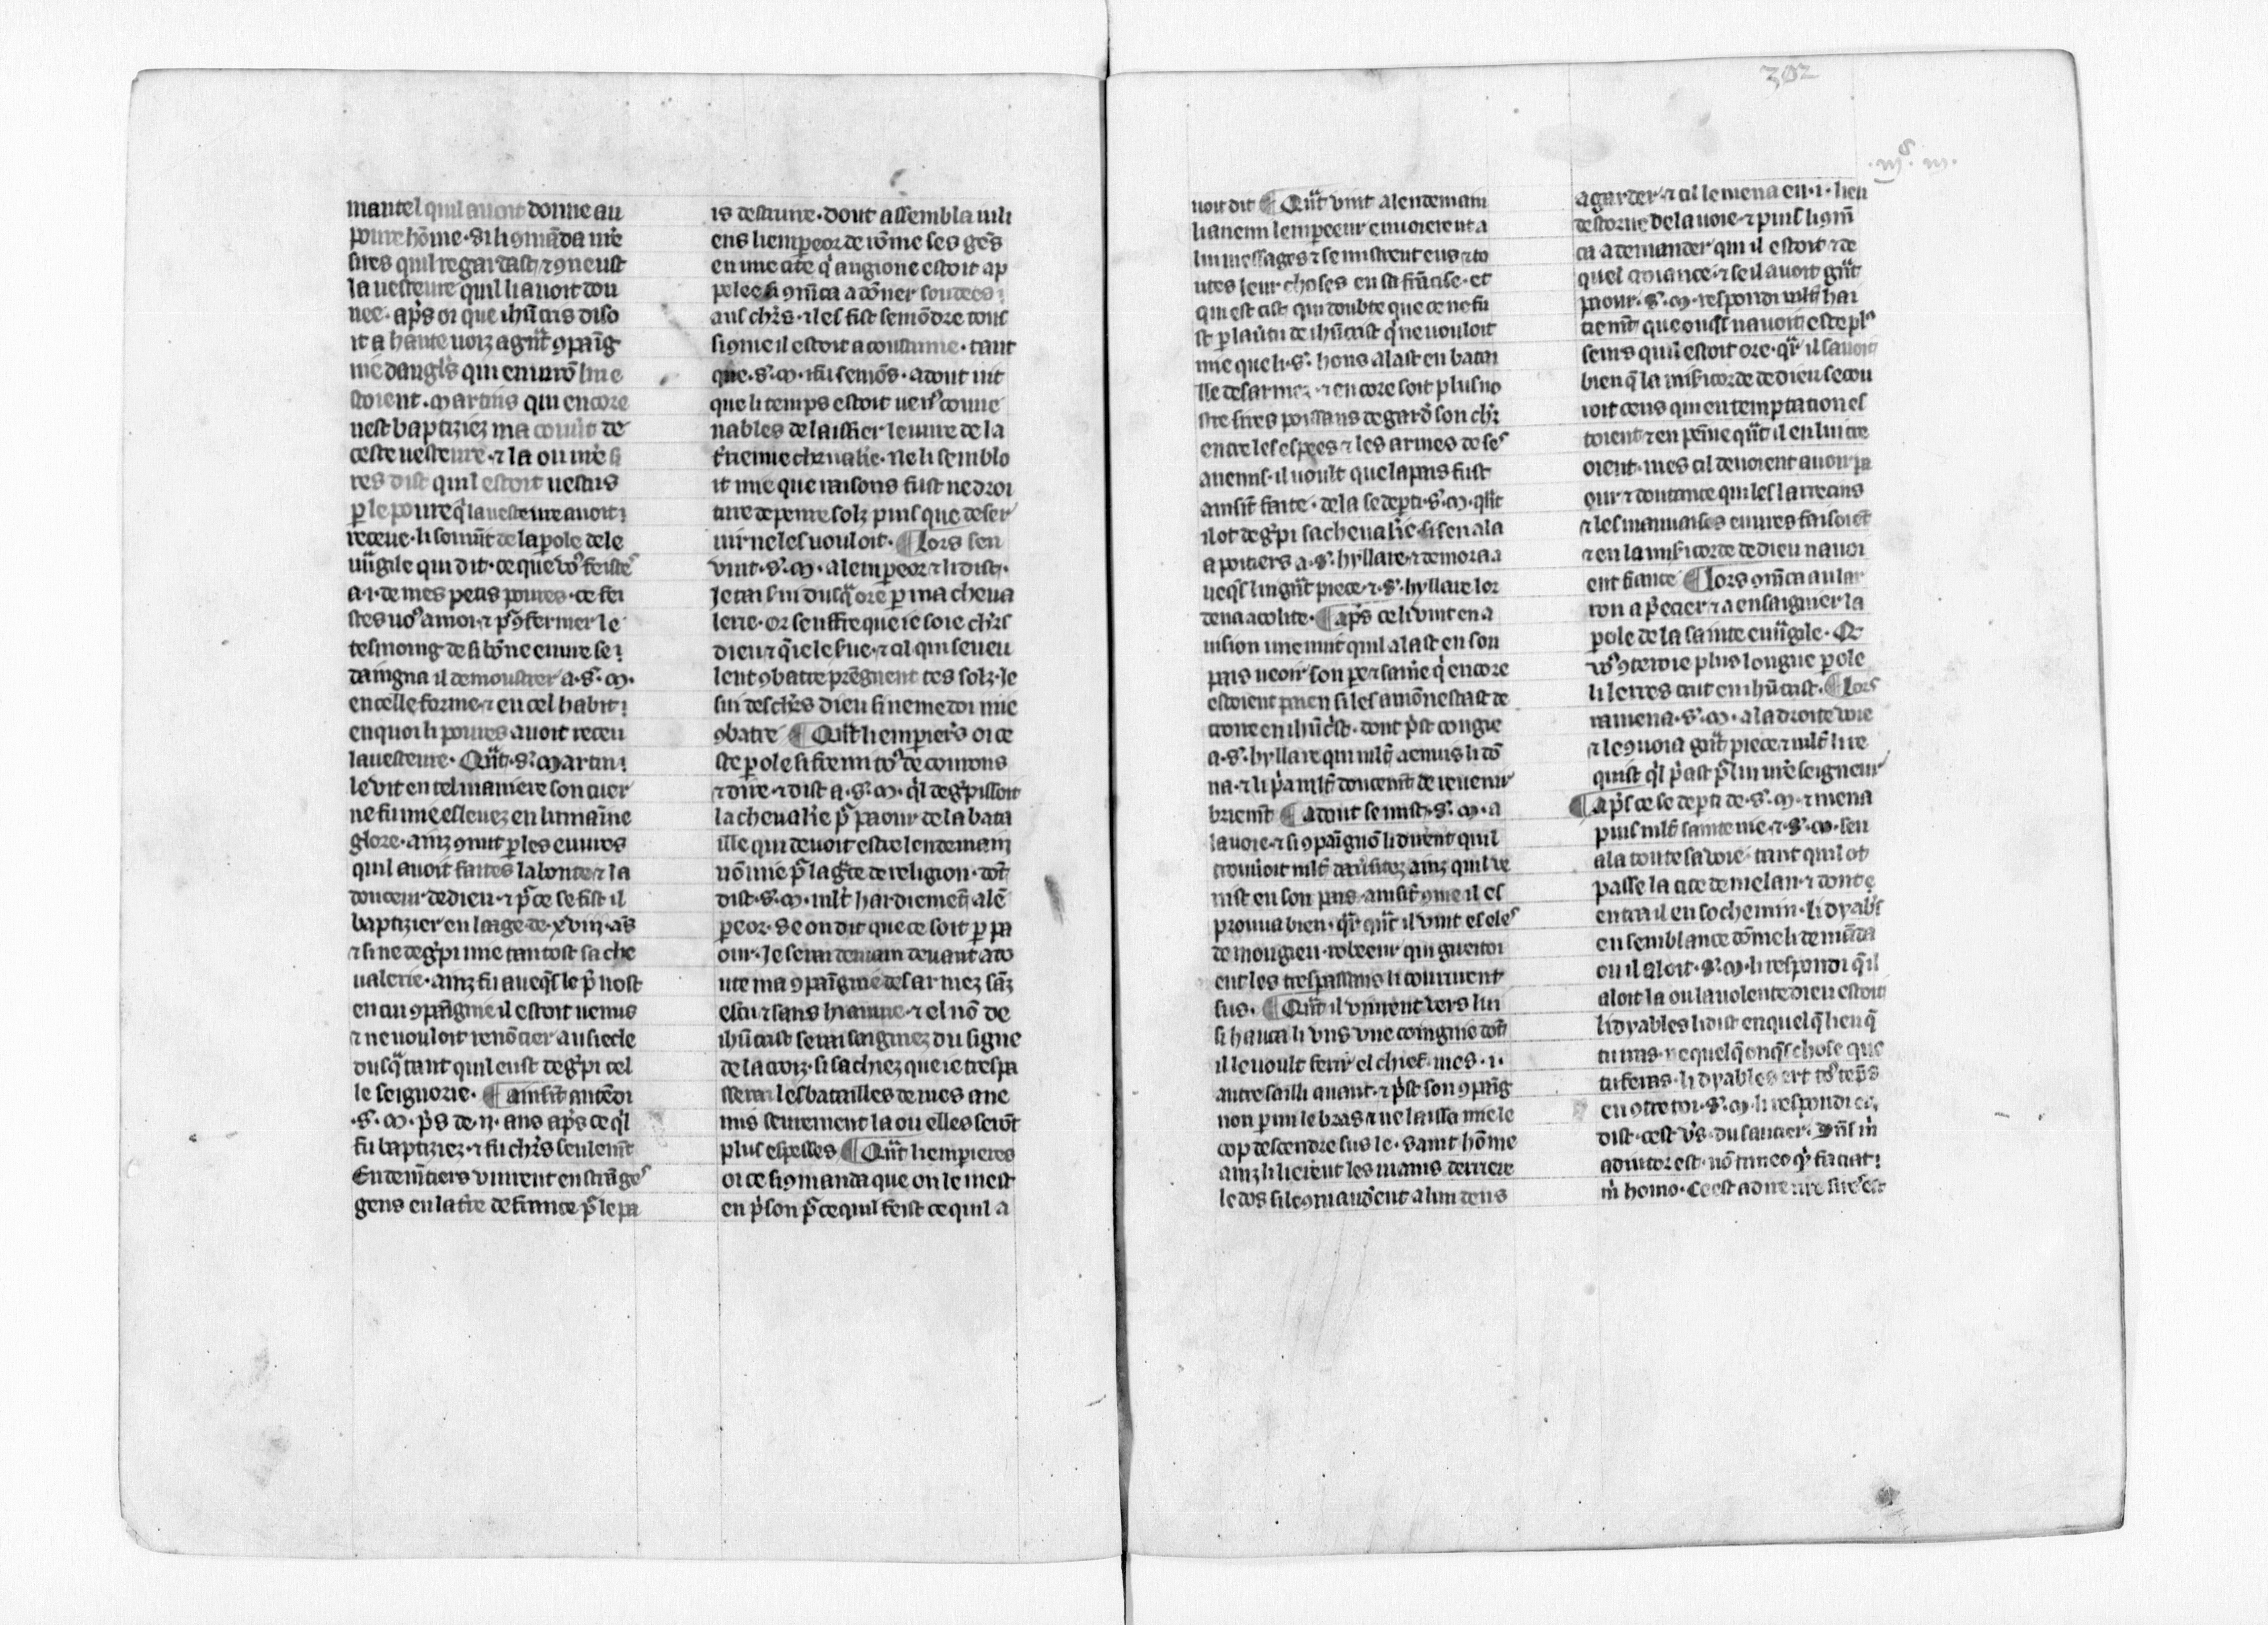 mantel quil auoit donne au
poure hōme. Si li ꝯmāda nr̄e
sires quil regardast ⁊ ꝯneust
la uesteure quil li auoit dou
nee. ap̄s oi que ihūcris diso
it a haute uoiz a gn̄t ꝯpaīg
nie dangl̄s qui enuirō lui e
stoient. Martins qui encore
nest baptiziez ma couūt de
ceste uesteure. ⁊ la ou nr̄e si
res dist quil estoit uestus
ꝑ le poure q̄ la uesteure auoit
receue. li souuīt de la ꝑole de le
uūgile qui dit. ce que uoꝰ feistes
a .i. de mes petis poures. ce fei
stes uoꝰ a moi. ⁊ pꝰ ꝯfermer le
tesmoing de si bōne euure se
daingna il demoustrer a .s. M.
en celle forme ⁊ en cel habit
en quoi li poures auoit receu
la uesteure. Qn̄t .s. Martin
le vit en tel maniere son cuer
ne fu mie esleuez en humaīne
glore. ainz ꝯnut ꝑ les euures
quil auoit faites la bonte ⁊ la
douceur de dieu. ⁊ pꝰ ce se fist il
baptizier en laage de .xviij. ās
⁊ si ne deḡpi mie tantost sa che
ualerie. ainz fu aueq̄s le p̄uost
en cui ꝯpaīgnie il estoit uenus
⁊ ne uouloit renōcier au siecle
dusq̄ tant quil eust deḡpi cel
le seignorie. ¶ ainsīt atēdi
.s. M. p̄s de .ij. ans ap̄s ce q̄l
fu baptiziez. ⁊ fu chr̄s seulemt̄
Endemītiers vinrent en strāges
gens en la t̄re de france pꝰ le pa
is destruire. dont assembla iuli
ens li empereor de rōme ses gēs
en une cite q̄ augione estoit ap
pelee si ꝯmēca a dōner soudees
aus chr̄s. ⁊ les fist semōdre tous
si ꝯme il estoit acoustume. tant
que .s. M. i fu semōs. adont uit
que li temps estoit uenꝰ conue
nables de laissier le uiure de la
t̄rienne cheualie. Ne li semblo
it mie que raisons fust ne droi
ture de penre solz puis que deser
uir ne les uouloit. ¶ Lors sen
vint .s. M. a lempereor ⁊ li dist.
Je tai serui dusq̄ ore ꝑ ma cheua
lerie. or seuffre que ie soie chr̄s
dieu ⁊ q̄ ie le serue. ⁊ cil qui se ueu
lent ꝯbatre prēgnent tes solz. Je
sui des chr̄s dieu si ne me doi mie
ꝯbatre ¶ Qn̄t li emperiers oi ce
ste ꝑole si fremi toꝰ de courous
⁊ dire ⁊ dist a .s. M. q̄l deḡpissoit
la cheualie pꝰ paour de la bata
ille qui deuoit estre lendemain
nō mie pꝰ la gr̄ce de religion. dōt
dist .s. M. mlt̄ hardiement̄ a lē
pereor. Se on dit que ce soit ꝑ pa
our. Je serai demain deuant a to
ute ma ꝯpaīgnie desarmez sāz
escu ⁊ sans hiaume. ⁊ el nō de
ihūcrist serai seignez du signe
de la croiz. si sachiez que ie trespa
sserai les batailles de mes ane
mis seurement la ou elles serōt
plus espesses ¶ Qn̄t li emperieres
oi ce si ꝯmanda que on le meist
en p̄son pꝰ ce quil feist ce quil a
302
uoit dit ¶ Qn̄t vint a lendemain
li anemi lempereur enuoierent a
lui messages ⁊ se mistrent eus ⁊ to
utes leur choses en sa frācise. et
qui est cist qui doubte que ce ne fu
st ꝑ la ūtu de ihūcrist q̄ ne uouloit
mie que li .s. hons alast en batai
lle desarmez. ⁊ encore soit plus no
stre sires poissans de garder son chr̄
entre les espees ⁊ les armes de ses
anemis. il uoult que la pais fust
ainsīt faite. de la se depti .s. M. qn̄t
il ot deḡpi sa cheualie. si sen ala
a poitiers a .s. hyllare. ⁊ demora a
ueq̄s lui gn̄t piece. ⁊ .s. hyllare lor
dena acolite. ¶ ap̄s ce li vint en a
uision une nuit quil alast en son
pais ueoir son pere ⁊ sa mere q̄ encore
estoient paien si les amōnestast de
croire en ihūcrist. dont p̄st congie
a .s. hyllare qui mlt̄ a enuis li dō
na. ⁊ li p̄a mlt̄ doucemt̄ de reuenir
briemt̄ ¶ adont se mist .s. M. a
la uoie. ⁊ si ꝯpaīgnō li dirent quil
trouūoit mlt̄ dad̄sitez ainz quil ve
nist en son pais. ainsīt ꝯme il es
prouua bien. qr̄ qn̄t il vint es eles
de mougieu. robeeur qui guertoi
ent les trespassans li coururent
sus. ¶ Qn̄t il vinrent vers lui
si hauca li vns vne coingnie dōt
il le uoult ferir el chief. mes .i.
autre sailli auant. ⁊ p̄st son ꝯpaīg
non parmi le bras ⁊ ne laissa mie le
cop descendre sus le. saint hōme
ainz li lierent les mains derriere
le dos si le ꝯmanderent a lun deus
.mꝰ. m.
a garder. ⁊ cil le mena en .i. lieu
destorne de la uoie. ⁊ puis li ꝯmē
ca a demander qui il estoit. ⁊ de
quel creance. ⁊ se il auoit gn̄t
paour. .S. M. respondi mlt̄ har
diemt̄ que onq̄s nauoit este plꝰ
seurs quil estoit ore. qr̄ il sauoit
bien q̄ la misicorde de dieu secou
roit ceus qui en temptation es
toient ⁊ en peine qn̄t il en lui cre
oient. mes cil deuoient auoir pa
our ⁊ doutance qui les larrecins
⁊ les mauuaises euures faisoiēt
⁊ en la misicorde de dieu nauoi
ent fiance ¶ Lors ꝯmēca au lar
ron a p̄cier ⁊ a ensaignier la
ꝑole de la sainte euūgile. Or
voꝰ ꝯteroie plus longue ꝑole
li lerres crut en ihūcrist. ¶ Lors
ramena .s. M. a la droite voie
⁊ le ꝯuoia gn̄t piece ⁊ mlt̄ li re
quist q̄l p̄ast pꝰ lui nr̄e seigneur
¶ ap̄s ce se depti de .s. M. ⁊ mena
puis mlt̄ sainte uie. ⁊ .s. M. sen
ala toute sa voie. tant quil ot
passe la cite de melan. ⁊ donc q̄
entra il en so chemin. li dyab̄s
en semblance dōme li demāda
ou il aloit. .S. M. li respondi q̄il
aloit la ou la volente dieu estoit
li dyables li dist en quelq̄ lieu q̄
tu iras. ne quelq̄ onq̄s chose que
tu feras. li dyables ert toꝰ tēps
en ꝯtre toi. .S. M. li respondi ⁊
dist. cest v̄s du sautier. Dn̄s m̄
adiutor est. nō timeo q̄ faciat
m̄ homo. Ce est a dire nr̄e sires est